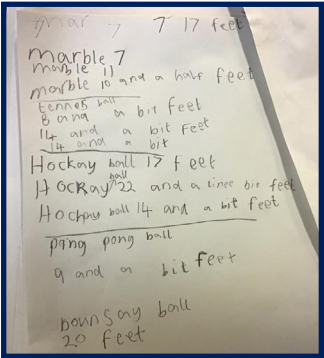 7 7 17 feet
marble 7
marble 11
marble 10 and a half feet
tennes ball
8 and a bit feet
14 and a bit feet
14 and a bit
Hockay ball 17 feet
Hockay ball 22 and a bit feet
Hockay ball 14 and a bit feet
pang pong ball
9 and a bit feet
bounsay ball
20 feet